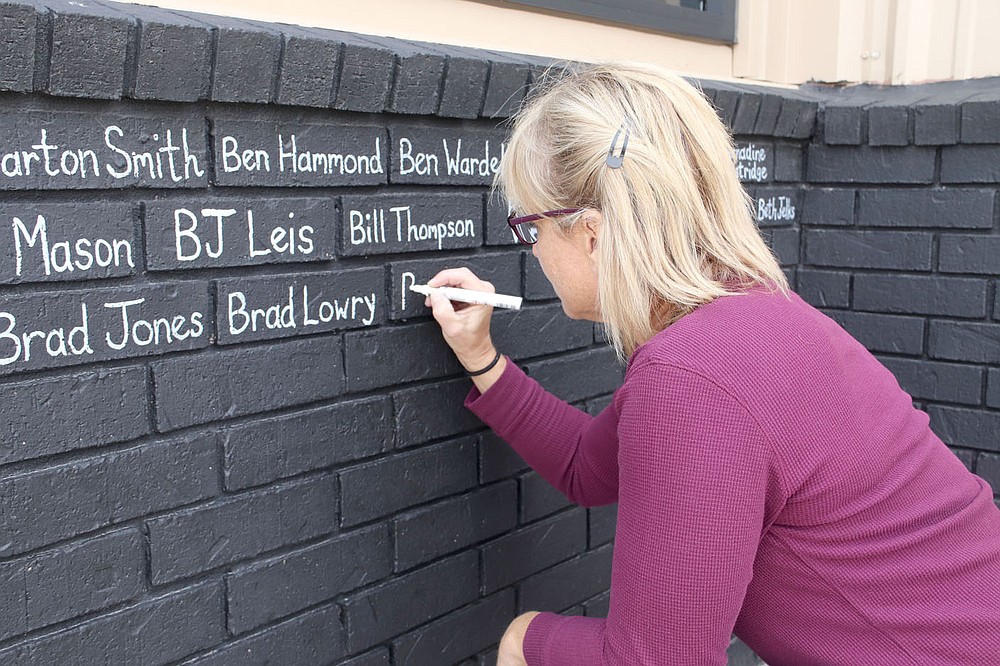 arton Smith Ben Hammond Ben Wardel
Mason BJ Leis Bill Thompson Beth Jelks
Brad Jones Brad Lowry